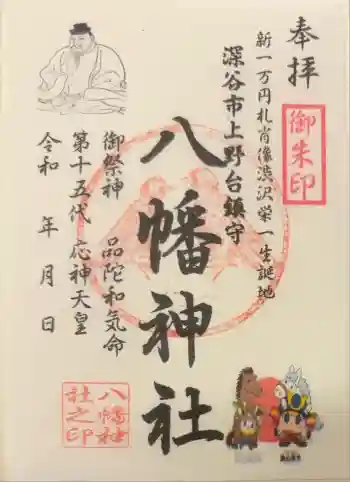 奉拝
御朱印
新一万円札肖像渋沢栄一生誕地
深谷市上野台鎮守
八幡神社
御祭神 品陀和気命
第十五代 応神天皇
令和 年 月 日
八幡神
社之印